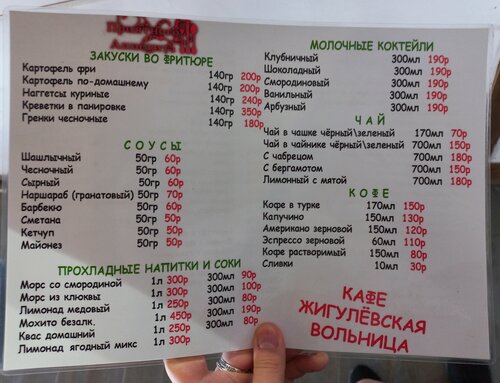 Приятного
Аппетита!!!
ЗАКУСКИ ВО ФРИТЮРЕ
Картофель фри 140гр 200р
Картофель по-домашнему 140гр 200р
Наггетсы куриные 140гр 240р
Креветки в панировке 140гр 350р
Гренки чесночные 140гр 180р
СОУСЫ
Шашлычный 50гр 60р
Чесночный 50гр 60р
Сырный 50гр 60р
Наршараб (гранатовый) 50гр 70р
Барбекю 50гр 60р
Сметана 50гр 50р
Кетчуп 50гр 50р
Майонез 50гр 50р
ПРОХЛАДНЫЕ НАПИТКИ И СОКИ
Морс со смородиной 1л 300р 300мл 90р
Морс из клюквы 1л 300р 300мл 100р
Лимонад медовый 1л 250р 300мл 80р
Мохито безалк. 1л 450р 300мл 190р
Квас домашний 1л 250р 300мл 80р
Лимонад ягодный микс 1л 300р
МОЛОЧНЫЕ КОКТЕЙЛИ
Клубничный 300мл 190р
Шоколадный 300мл 190р
Смородиновый 300мл 190р
Ванильный 300мл 190р
Арбузный 300мл 190р
ЧАЙ
Чай в чашке чёрный\зеленый 170мл 70р
Чай в чайнике чёрный\зеленый 700мл 150р
С чабрецом 700мл 180р
С бергамотом 700мл 150р
Лимонный с мятой 700мл 180р
КОФЕ
Кофе в турке 170мл 150р
Капучино 150мл 130р
Американо зерновой 150мл 120р
Эспрессо зерновой 60мл 110р
Кофе растворимый 150мл 80р
Сливки 10мл 30р
КАФЕ
ЖИГУЛЁВСКАЯ
ВОЛЬНИЦА